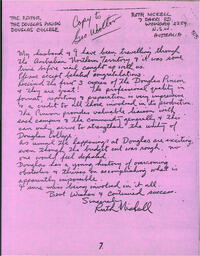 THE EDITOR,
THE DOUGLAS PINION
DOUGLAS COLLEGE
Copy to
RUTH NICKELL
N.S.W.
AUSTRALIA
My husband & I have been travelling through
the Australian Northern Territory & it was some
time before mail caught up with us.
Please accept belated congratulations.
Received the first 3 copies of the Douglas Pinion
& they are great! The professional quality in
format, reporting & presentation is very impressive
& a credit to all those involved in the production.
The Pinion provides valuable liaison with
each campus & the community generally & this
can only serve to strengthen the unity of
Douglas College.
As usual the happenings at Douglas are exciting,
even though the budget cut was rough, no
one would feel defeated.
Douglas has a young history of overcoming
obstacles & thrives on accomplishing what is
apparently impossible.
I sure miss being involved in it all.
Best Wishes & continued success.
Sincerely
Ruth Nickell
7